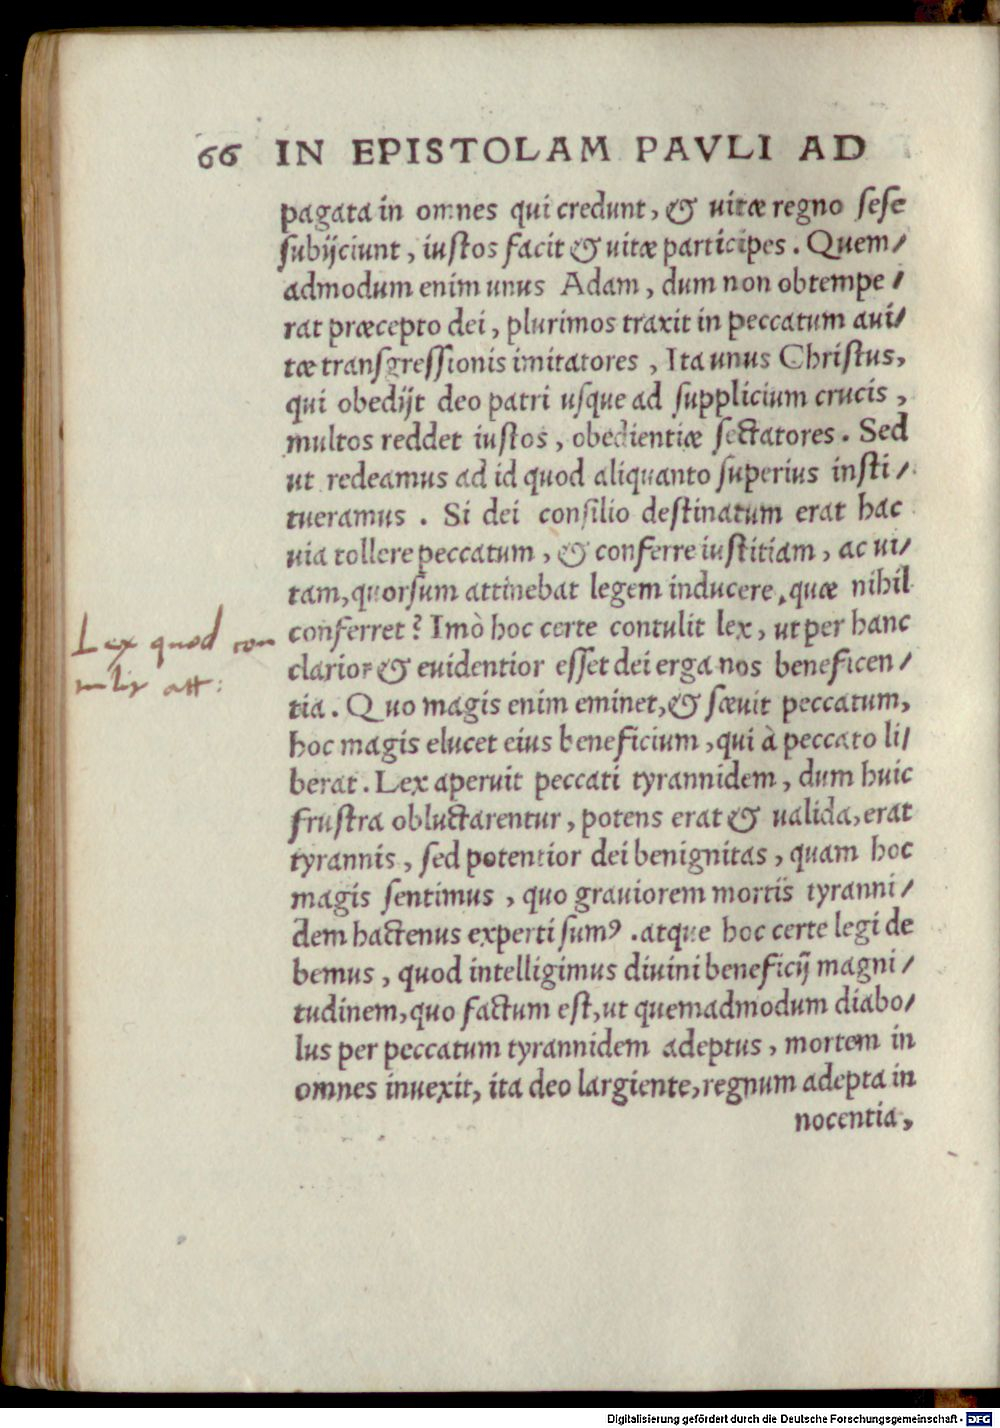 66 IN EPISTOLAM PAVLI AD
pagata in omnes qui credunt, & uitæ regno sese
subijciunt, iustos facit & uitæ participes. Quem/
admodum enim unus Adam, dum non obtempe/
rat præcepto dei, plurimos traxit in peccatum aui/
tæ transgressionis imitatores, Ita unus Christus,
qui obedijt deo patri usque ad supplicium crucis,
multos reddet iustos, obedientiæ sectatores. Sed
ut redeamus ad id quod aliquanto superius insti/
tueramus. Si dei consilio destinatum erat hac
uia tollere peccatum, & conferre iustitiam, ac ui/
tam, quorsum attinebat legem inducere, quæ nihil
conferret? Imò hoc certe contulit lex, ut per hanc
clarior & euidentior esset dei erga nos beneficen/
tia. Quo magis enim eminet, & sæuit peccatum,
hoc magis elucet eius beneficium, qui à peccato li/
berat. Lex aperuit peccati tyrannidem, dum huic
frustra obluctarentur, potens erat & ualida, erat
tyrannis, sed potentior dei benignitas, quam hoc
magis sentimus, quo grauiorem mortis tyranni/
dem hactenus experti sumꝰ. atque hoc certe legi de
bemus, quod intelligimus diuini beneficij magni/
tudinem, quo factum est, ut quemadmodum diabo/
lus per peccatum tyrannidem adeptus, mortem in
omnes inuexit, ita deo largiente, regnum adepta in
nocentia,
Lex quod con
att:
Digitalisierung gefördert durch die Deutsche Forschungsgemeinschaft - DFG